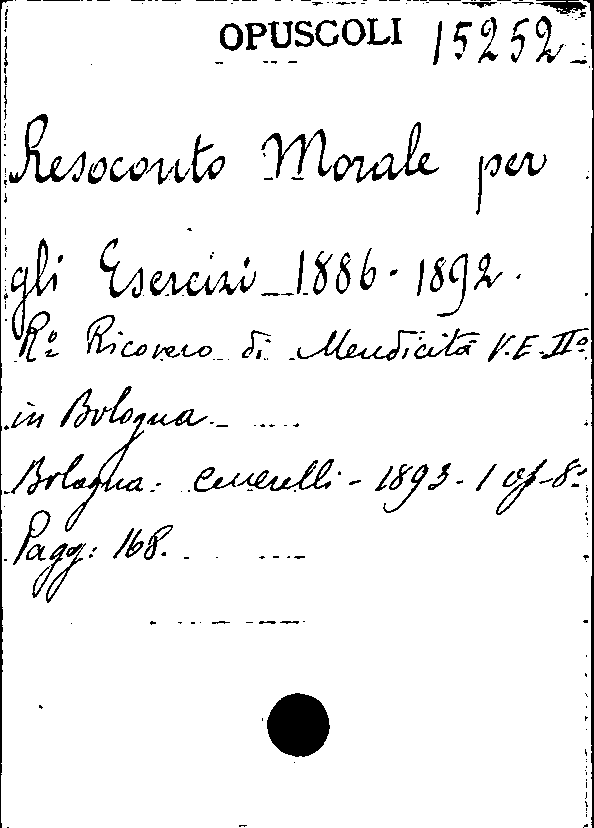 OPUSCOLI 15252
Resoconto Morale per
gli Esercizi 1886-1892.
Rº Ricovero di Mendicità V.E.IIº
in Bologna.
Bologna: Cenerelli - 1893 - 1 op-8º
Pagg: 168.